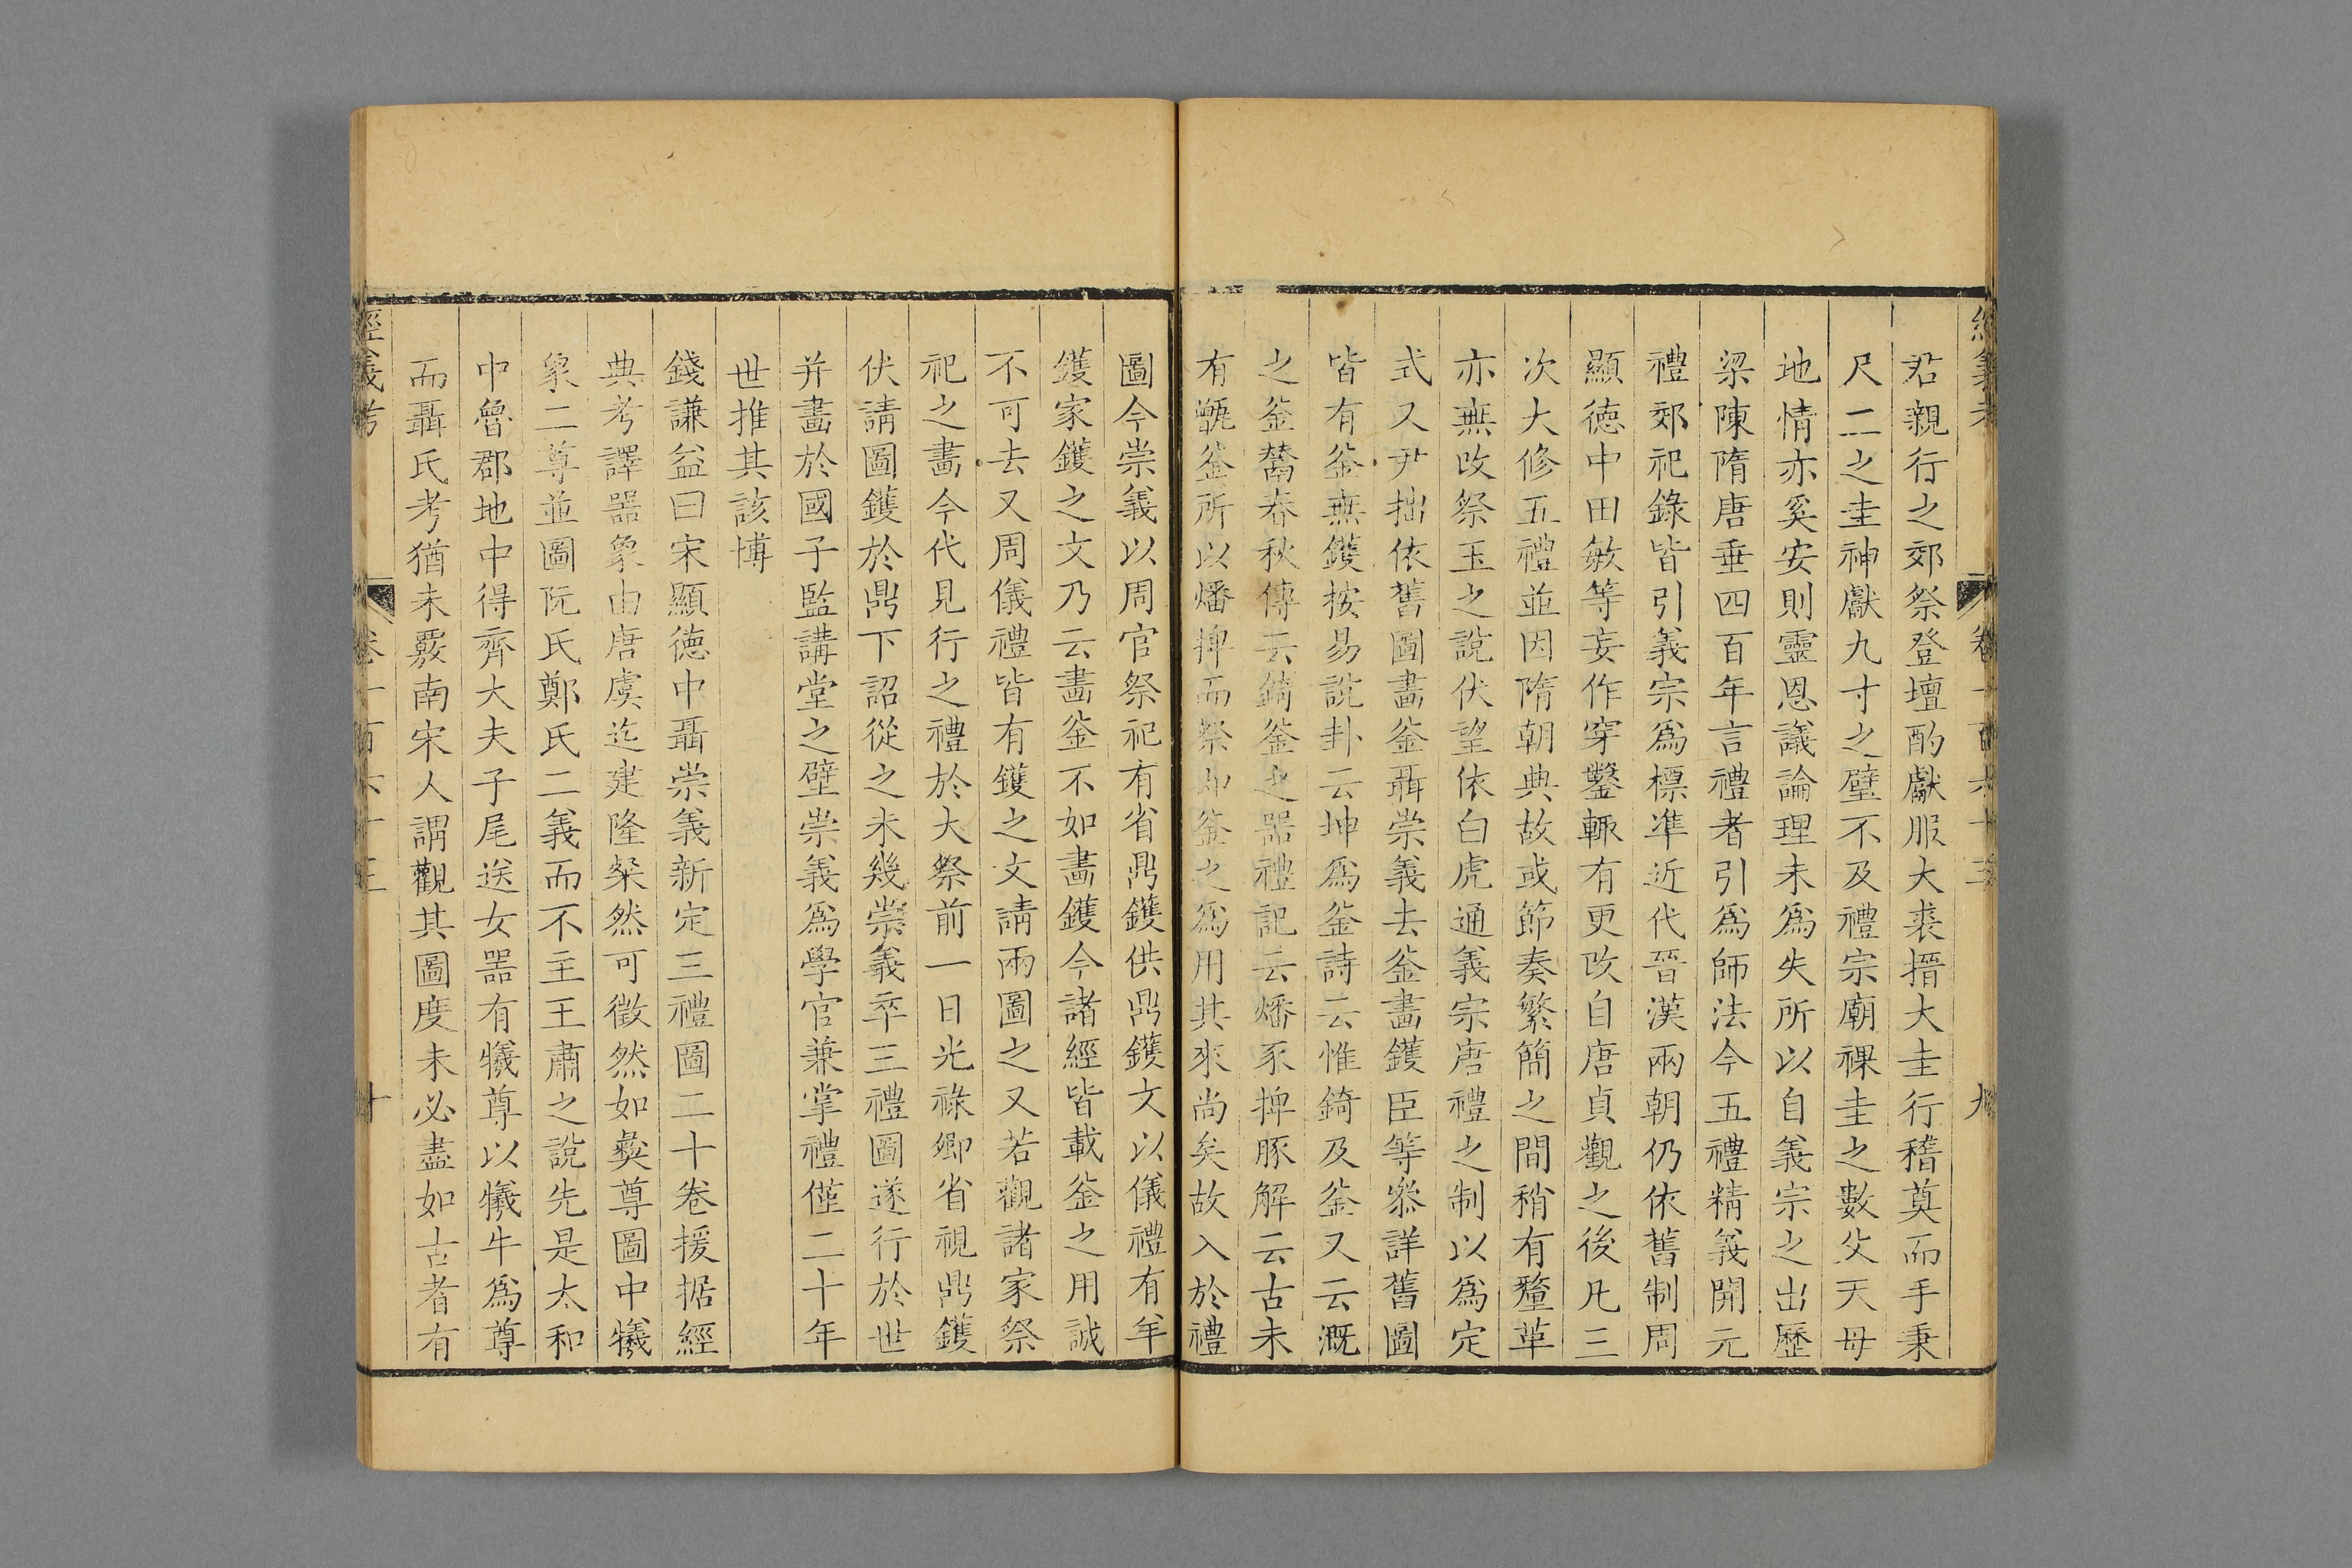 經義考 卷一百六十三 九
君親行之郊祭登壇酌獻服大裘搢大圭行稽奠而手秉
尺二之圭神獻九寸之璧不及禮宗廟祼圭之數父天母
地情亦奚安則靈恩議論理未爲失所以自義宗之出歷
梁陳隋唐垂四百年言禮者引爲師法今五禮精義開元
禮郊祀錄皆引義宗爲標準近代晉漢兩朝仍依舊制周
顯德中田敏等妄作穿鑿輒有更改自唐貞觀之後凡三
次大修五禮並因隋朝典故或節奏繁簡之間稍有釐革
亦無改祭玉之說伏望依白虎通義宗唐禮之制以爲定
式又尹拙依舊圖畫釜聶崇義去釜畫鑊臣等叅詳舊圖
皆有釜無鑊按易說卦云坤爲釜詩云惟錡及釜又云溉
之釜鬵春秋傳云錡釜之器禮記云燔豕捭豚解云古未
有甑釜所以燔捭而祭卽釜之爲用其來尚矣故入於禮
圖今崇義以周官祭祀有省鼎鑊供鼎鑊文以儀禮有羊
鑊家鑊之文乃云畫釜不如畫鑊今諸經皆載釜之用誠
不可去又周儀禮皆有鑊之文請兩圖之又若觀諸家祭
祀之畫今代見行之禮於大祭前一日光祿卿省視鼎鑊
伏請圖鑊於鼎下詔從之未幾崇義卒三禮圖遂行於世
并畫於國子監講堂之壁崇義爲學官兼掌禮僅二十年
世推其該博
錢謙益曰宋顯德中聶崇義新定三禮圖二十卷援据經
典考譯器象由唐虞迄建隆粲然可徵然如彜尊圖中犧
象二尊並圖阮氏鄭氏二義而不主王肅之說先是太和
中魯郡地中得齊大夫子尾送女器有犧尊以犧牛爲尊
而聶氏考猶未覈南宋人謂觀其圖度未必盡如古者有
經義考 卷一百六十三 十